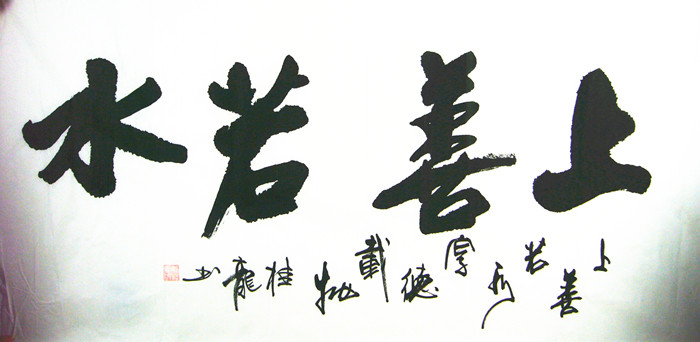 上善若水
上善若水厚德載物桂龍书